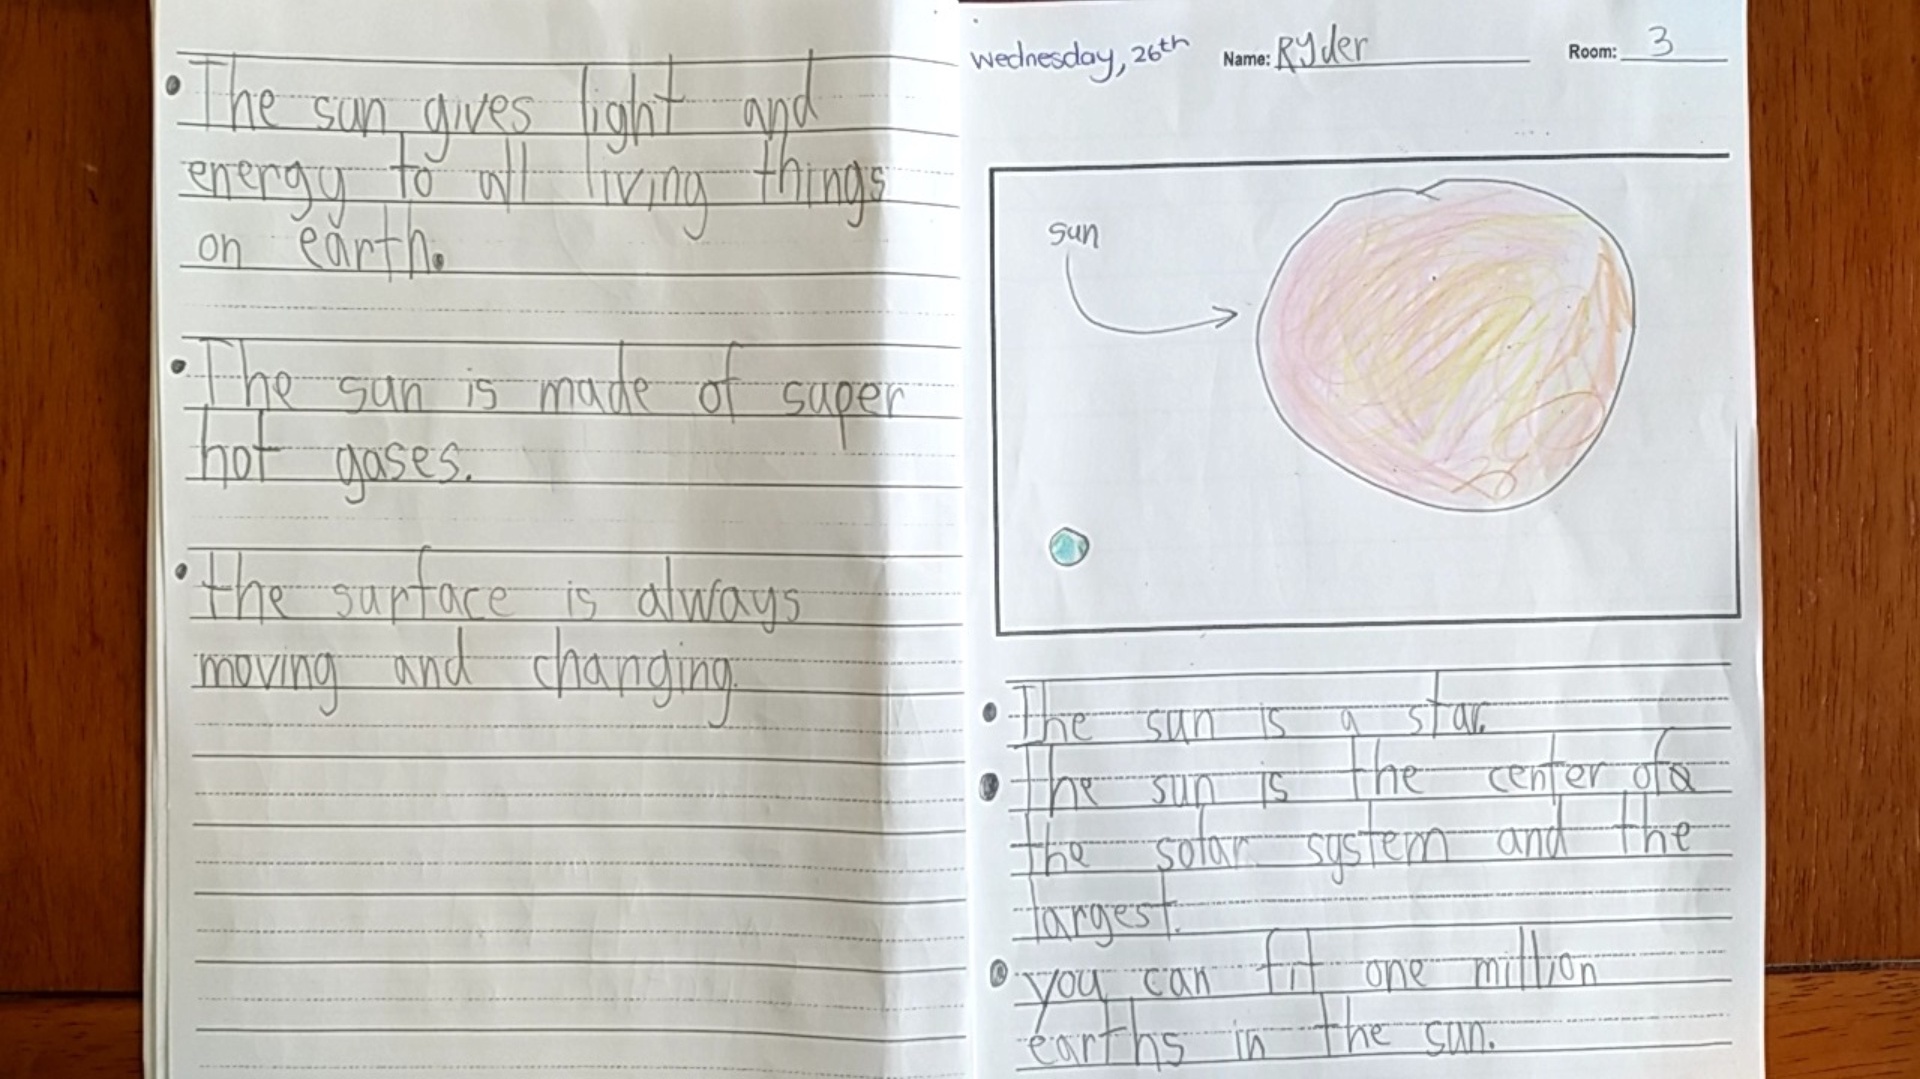 • The sun gives light and
energy to all living things
on earth.
• The sun is made of super
hot gases.
• the surface is always
moving and changing.
Wednesday, 26th
Name: Ryder
Room: 3
sun
• The sun is a star.
• The sun is the center of
the solar system and the
largest.
• you can fit one million
earths in the sun.